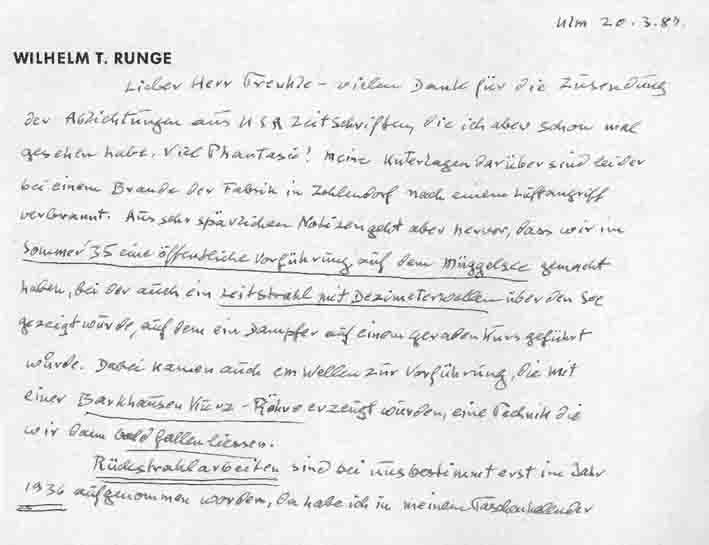 Ulm 20.3.87.
WILHELM T. RUNGE
Lieber Herr Trenkle - vielen Dank für die Zusendung
der Ablichtungen aus USA Zeitschriften, die ich aber schon mal
gesehen habe. Viel Phantasie! Meine Unterlagen darüber sind leider
bei einem Brande der Fabrik in Zehlendorf nach einem Luftangriff
verbrannt. Aus sehr spärlichen Notizen geht aber hervor, dass wir im
Sommer 35 eine öffentliche Vorführung auf dem Müggelsee gemacht
haben, bei der auch ein Leitstrahl mit Dezimeterwellen über den See
gezeigt wurde, auf dem ein Dampfer auf einem geraden Kurs geführt
wurde. Dabei kamen auch cm Wellen zur Vorführung, die mit
einer Barkhausen Kurz-Röhre erzeugt wurden, eine Technik die
wir dann bald fallen liessen.
Rückstrahlarbeiten sind bei uns bestimmt erst im Jahr
1936 aufgenommen worden, da habe ich in meinem Taschenkalender